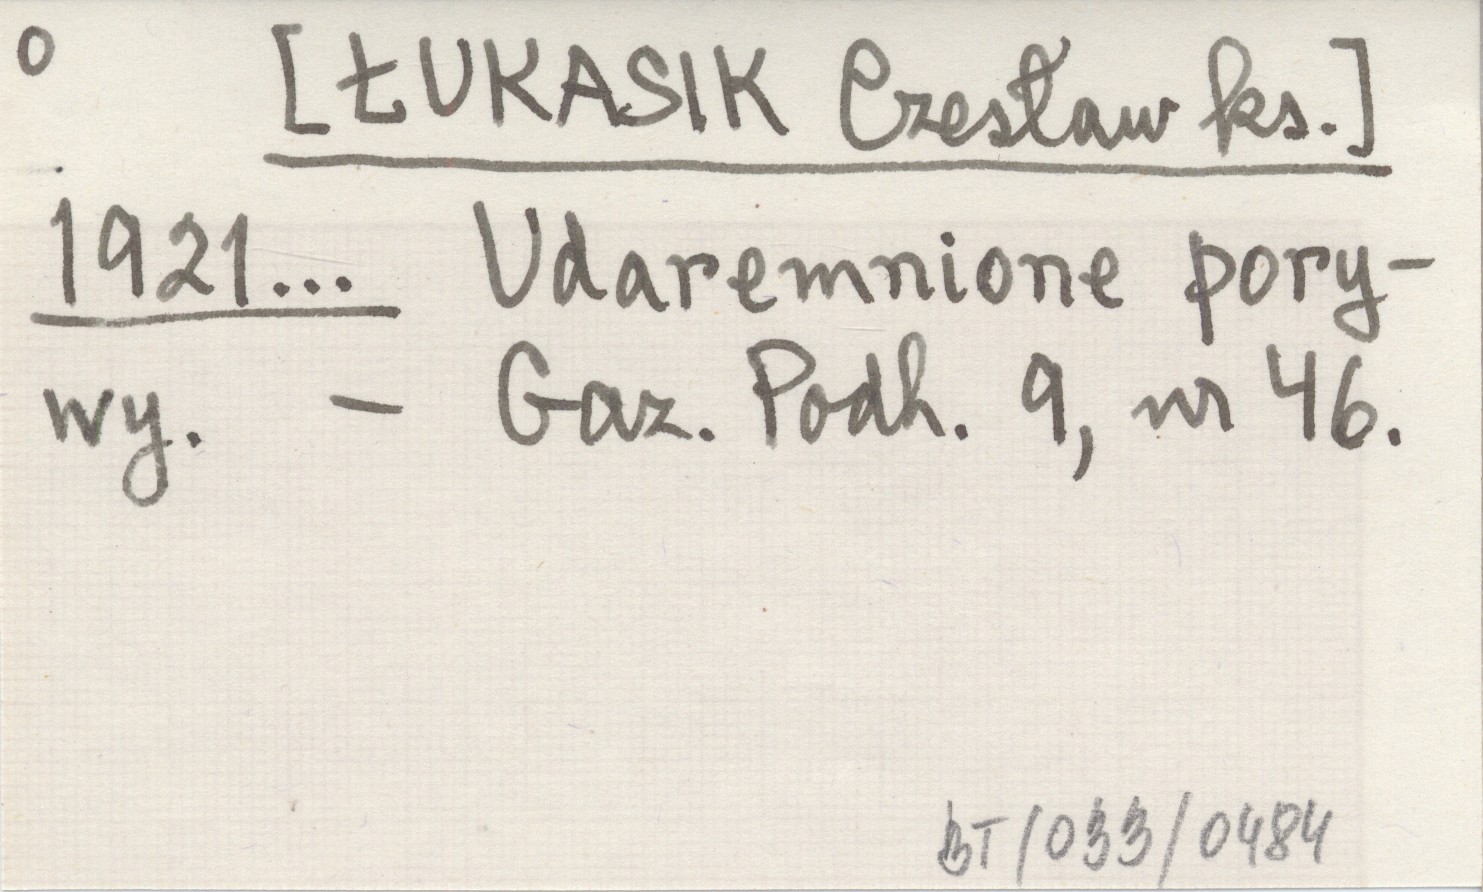 o [ŁUKASIK Czesław ks.]
1921... Udaremnione pory-
wy. - Gaz. Podh. 9, nr 46.
BT/033/0484